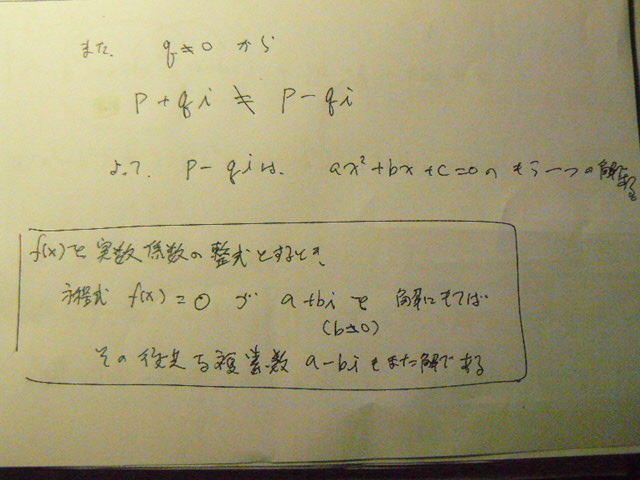 また、 q≠0 から
p+qi ≠ p-qi
よって、 p-qiは、 ax²+bx+c=0の もう一つの解である
f(x)を実数係数の整式とするとき、
方程式 f(x)=0 が a+bi を 解にもてば
(b≠0)
その役共な複素数 a-bi もまた解である